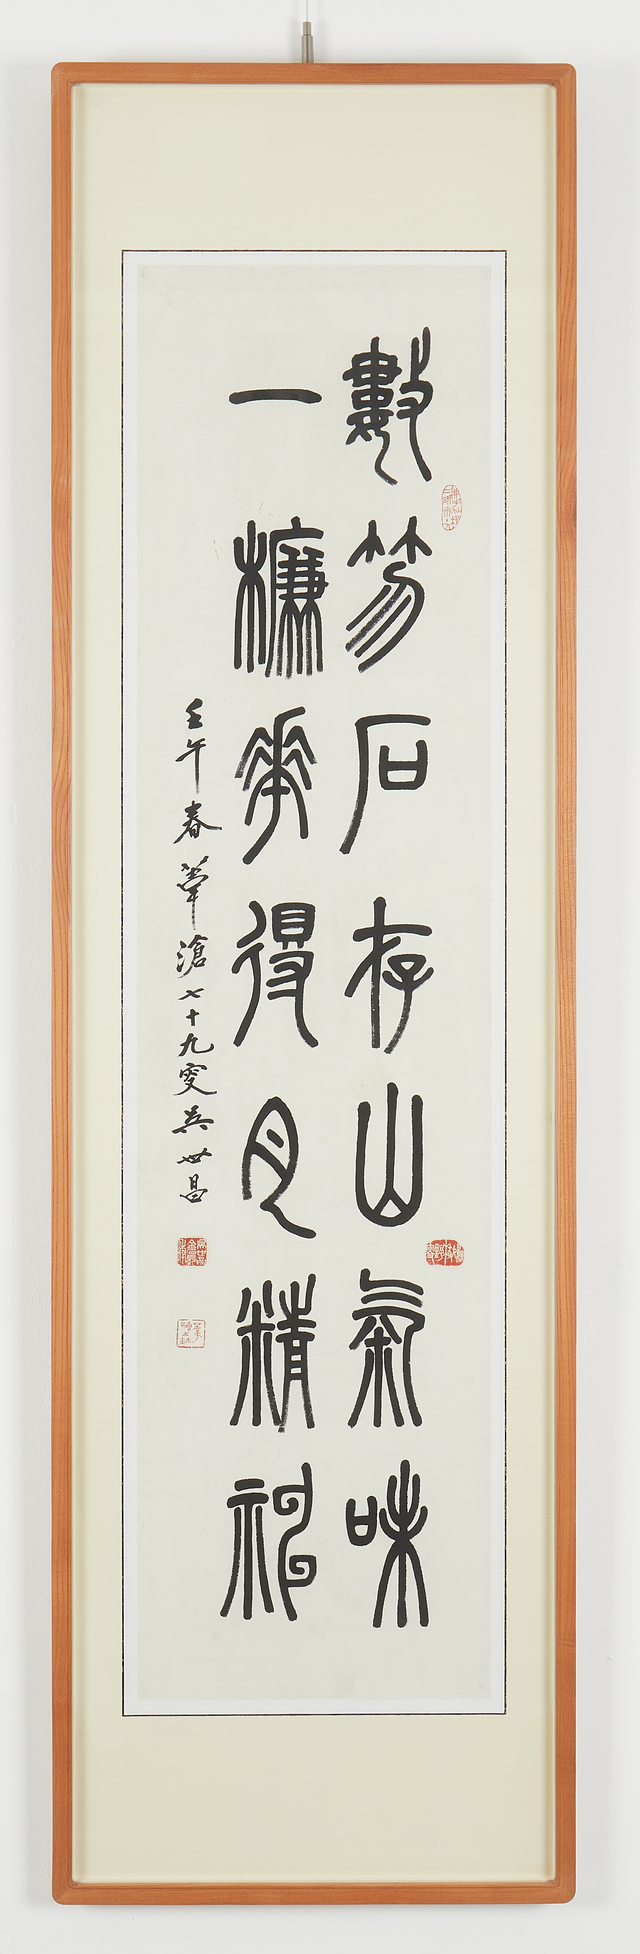 數笏石存山氣味
一 花得月精神
壬午春 滄七十九叟吳世昌